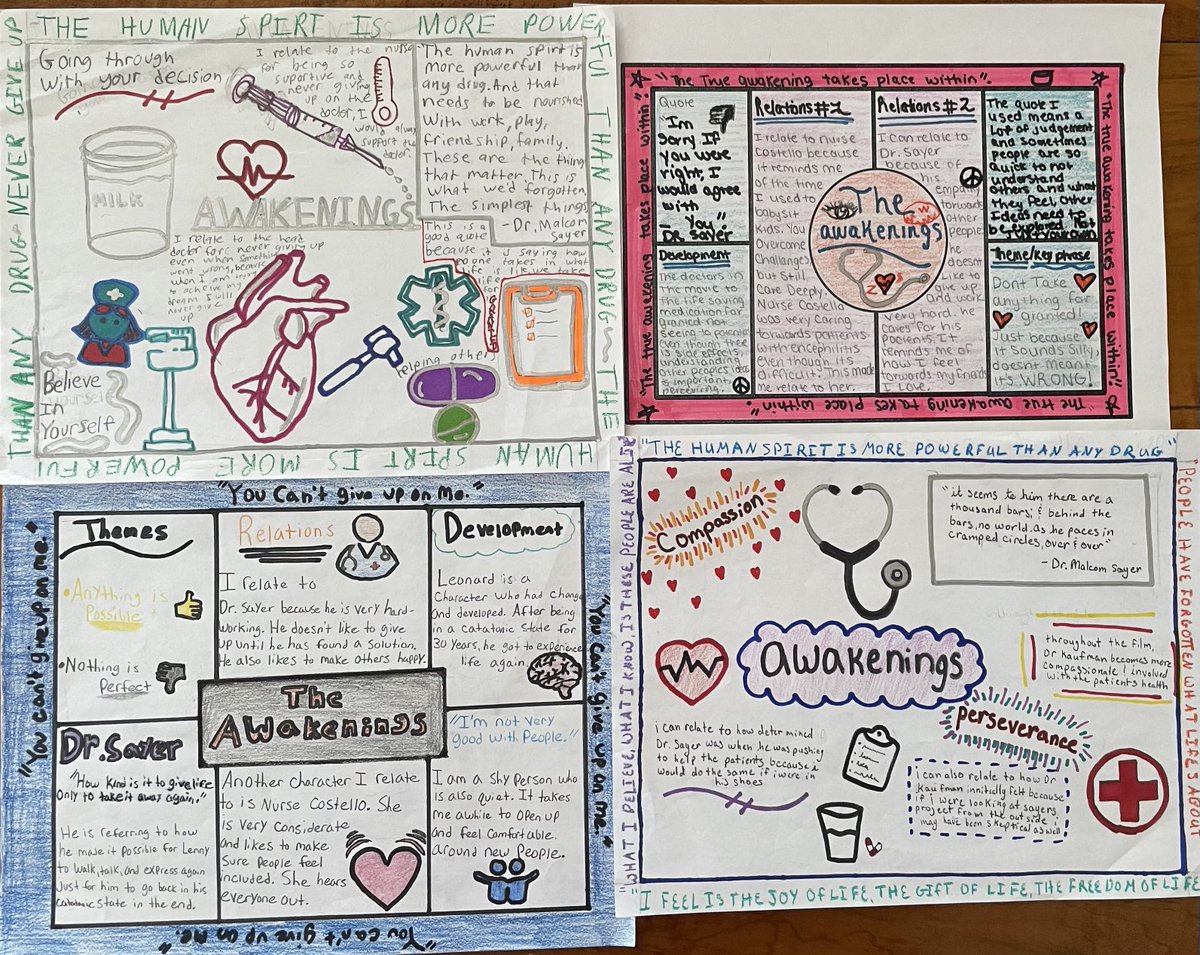 THE HUMAN SPIRT IS MORE POWERFUL THAN ANY DRUG ~ THE HUMAN SPIRT IS MORE POWERFUL THAN ANY DRUG ~ NEVER GIVE UP
Going through
With your decision
I relate to the nurse
for being so
suportive and
never giving
up on the
doctor, I
would always
support the
doctor.
"The human spirt is
more powerful than
any drug. And that
needs to be nourished
With work, play,
friendship, family.
These are the things
that matter. This is
what we'd forgotten,
The simplest things"
- Dr, Malcom
Sayer
MILK
AWAKENINGS
I relate to the head
doctor for never giving up
even when something
went wrong, because
when I want
to achieve my
dream I will
never give
up
This is a
good quote
because it
is saying how
no one
takes in what
life is like we take
life for
GRANTED
helping others
Believe
In
Yourself
"The True awakening takes place within".
"The true awakening takes place within".
"The true awakening takes place within".
"The true awakening takes place within".
Quote
"I'm
sorry If
You were
right, I
would agree
with
You"
DR. SAYER
Development
The doctors in
the movie to
the life saving
medication for
granted not
seeing to patients
Even though there
is side effects,
understanding
other peoples ideas
is important
Relations #1
I relate to nurse
Costello because
it reminds me
of the time
I used to
babysit
kids. You
Overcome
Challenges
but still
Care Deeply.
Nurse Costello
was very caring
towards patients
with encephilitis
even though it's
difficult. This made
me relate to her.
Relations #2
I can relate to
Dr. Sayer
because of
his
empathy
towards
other
people
he
doesnt
Like to
give up
and work
very hard. he
cares for his
pacients. It
reminds me of
how I feel
towards my friends
I Love.
The
awakenings
The quote I
used means a
Lot of judgement
and sometimes
people are so
quick to not
understand
others and what
they feel, other
Ideas need to
be explored, not
just your own
Theme/key phrase
Dont Take
anything for
granted!
Just because
it Sounds Silly,
doesnt meant
it's WRONG!
"You Can't give up on Me."
"You can't give up on me."
"You can't give up on me."
"You can't give up on me."
Themes
• Anything is
Possible
• Nothing is
Perfect
Relations
I relate to
Dr. Sayer because he is very hard-
working. He doesn't like to give
up until he has found a solution.
He also likes to make others happy.
Development
Leonard is a
Character who had change
and developed. After being
in a catatonic state for
30 years, he got to experience
life again
The
AWAKENINGS
Dr. Sayer
"How kind is it to give life
Only to take it away again."
He is referring to how
he made it possible for Lenny
to walk, talk, and express again
Just for him to go back in his
Catatonic State in the end.
Another character I relate
to is Nurse Costello. She
is very Considerate
and likes to make
Sure People feel
included. She hears
everyone out.
"I'm not very
good with People."
I am a shy Person who
is also quiet. It takes
me awhile to open up
and feel Comfortable
around new People.
"THE HUMAN SPIRIT IS MORE POWERFUL THAN ANY DRUG"
"PEOPLE HAVE FORGOTTEN WHAT LIFE IS ABOUT
"I FEEL IS THE JOY OF LIFE, THE GIFT OF LIFE, THE FREEDOM OF LIFE
"WHAT I BELIEVE, WHAT I KNOW, IS THESE PEOPLE ARE ALIVE"
Compassion
"it seems to him there are a
thousand bars; & behind the
bars, no world. as he paces in
cramped circles, over & over"
- Dr. Malcom Sayer
awakenings
throughout the film,
Dr Kaufman becomes more
compassionate & involved
with the patients health
perseverance
i can relate to how determined
Dr. Sayer was when he was pushing
to help the patients because i
would do the same if i were in
his shoes
i can also relate to how Dr
Kaufman innitially felt because
if i were looking at sayers
project from the outside i
may have been skeptical as well